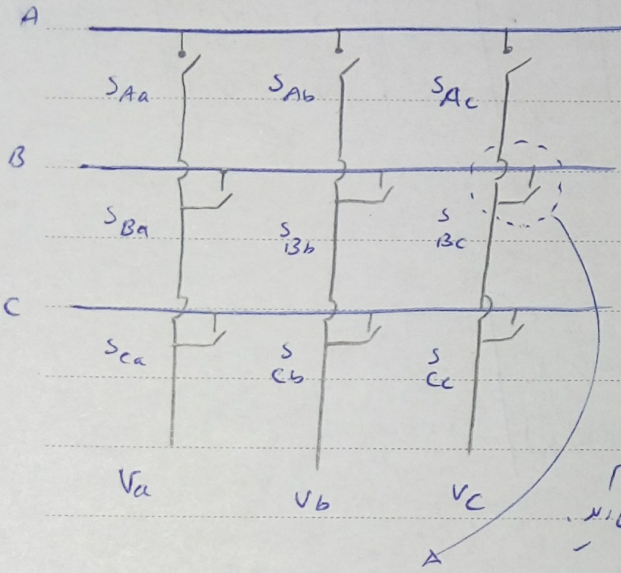 A
S Aa S Ab S Ac
B
S Ba S Bb S Bc
C
S Ca S Cb S Cc
Va Vb Vc
A